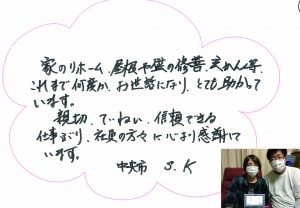 家のリホーム、屋根や壁の修善、えめん等、
これまで何度か、お世話になり、とても助かって
います。
親切、ていねい、信頼できる
仕事ぶり、社員の方々に心より感謝して
います。
中央市 S.K